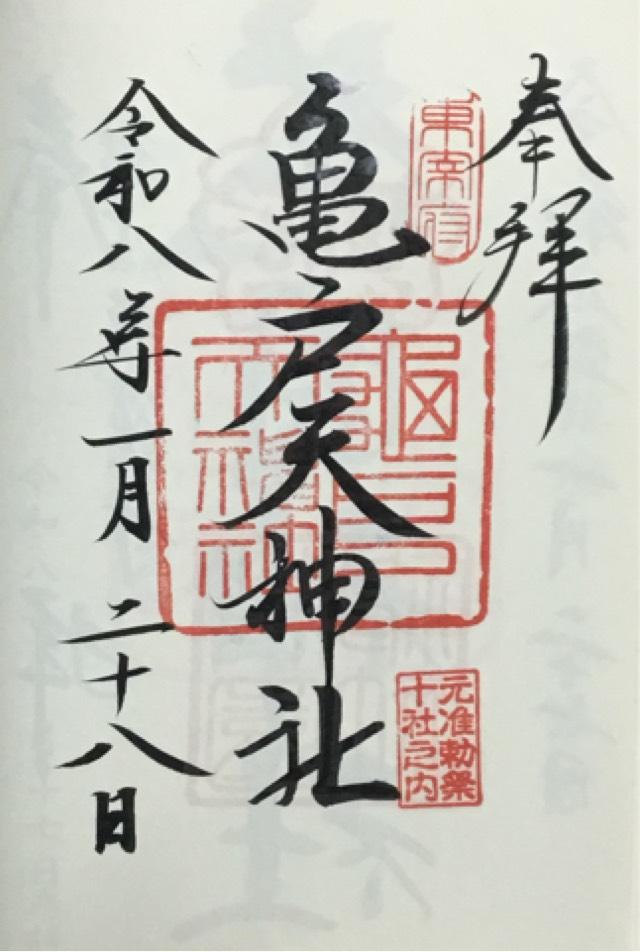 奉拝
東宰府
亀戸天神社
元准勅祭
十社之内
令和八年一月二十八日